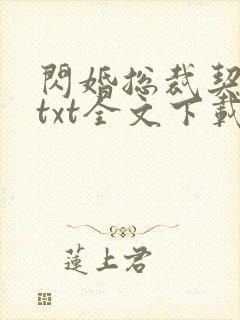 閃婚總裁契
txt全文下載
蓮上君